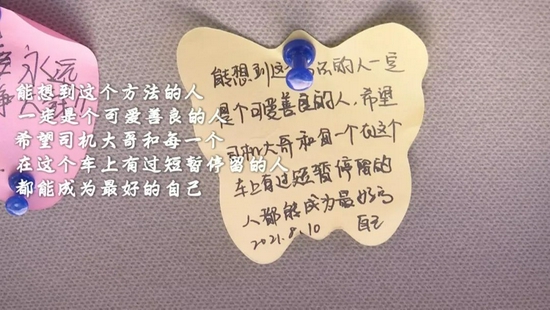 永远
能想到这个方法的人
一定是个可爱善良的人
希望司机大哥和每一个
在这个车上有过短暂停留的人
都能成为最好的自己
能想到这 法的人一定
是个可爱善良的人,希望
司机大哥和每一个在这个
车上有过短暂停留的
人都能成为最好的
自己
2021.8.10